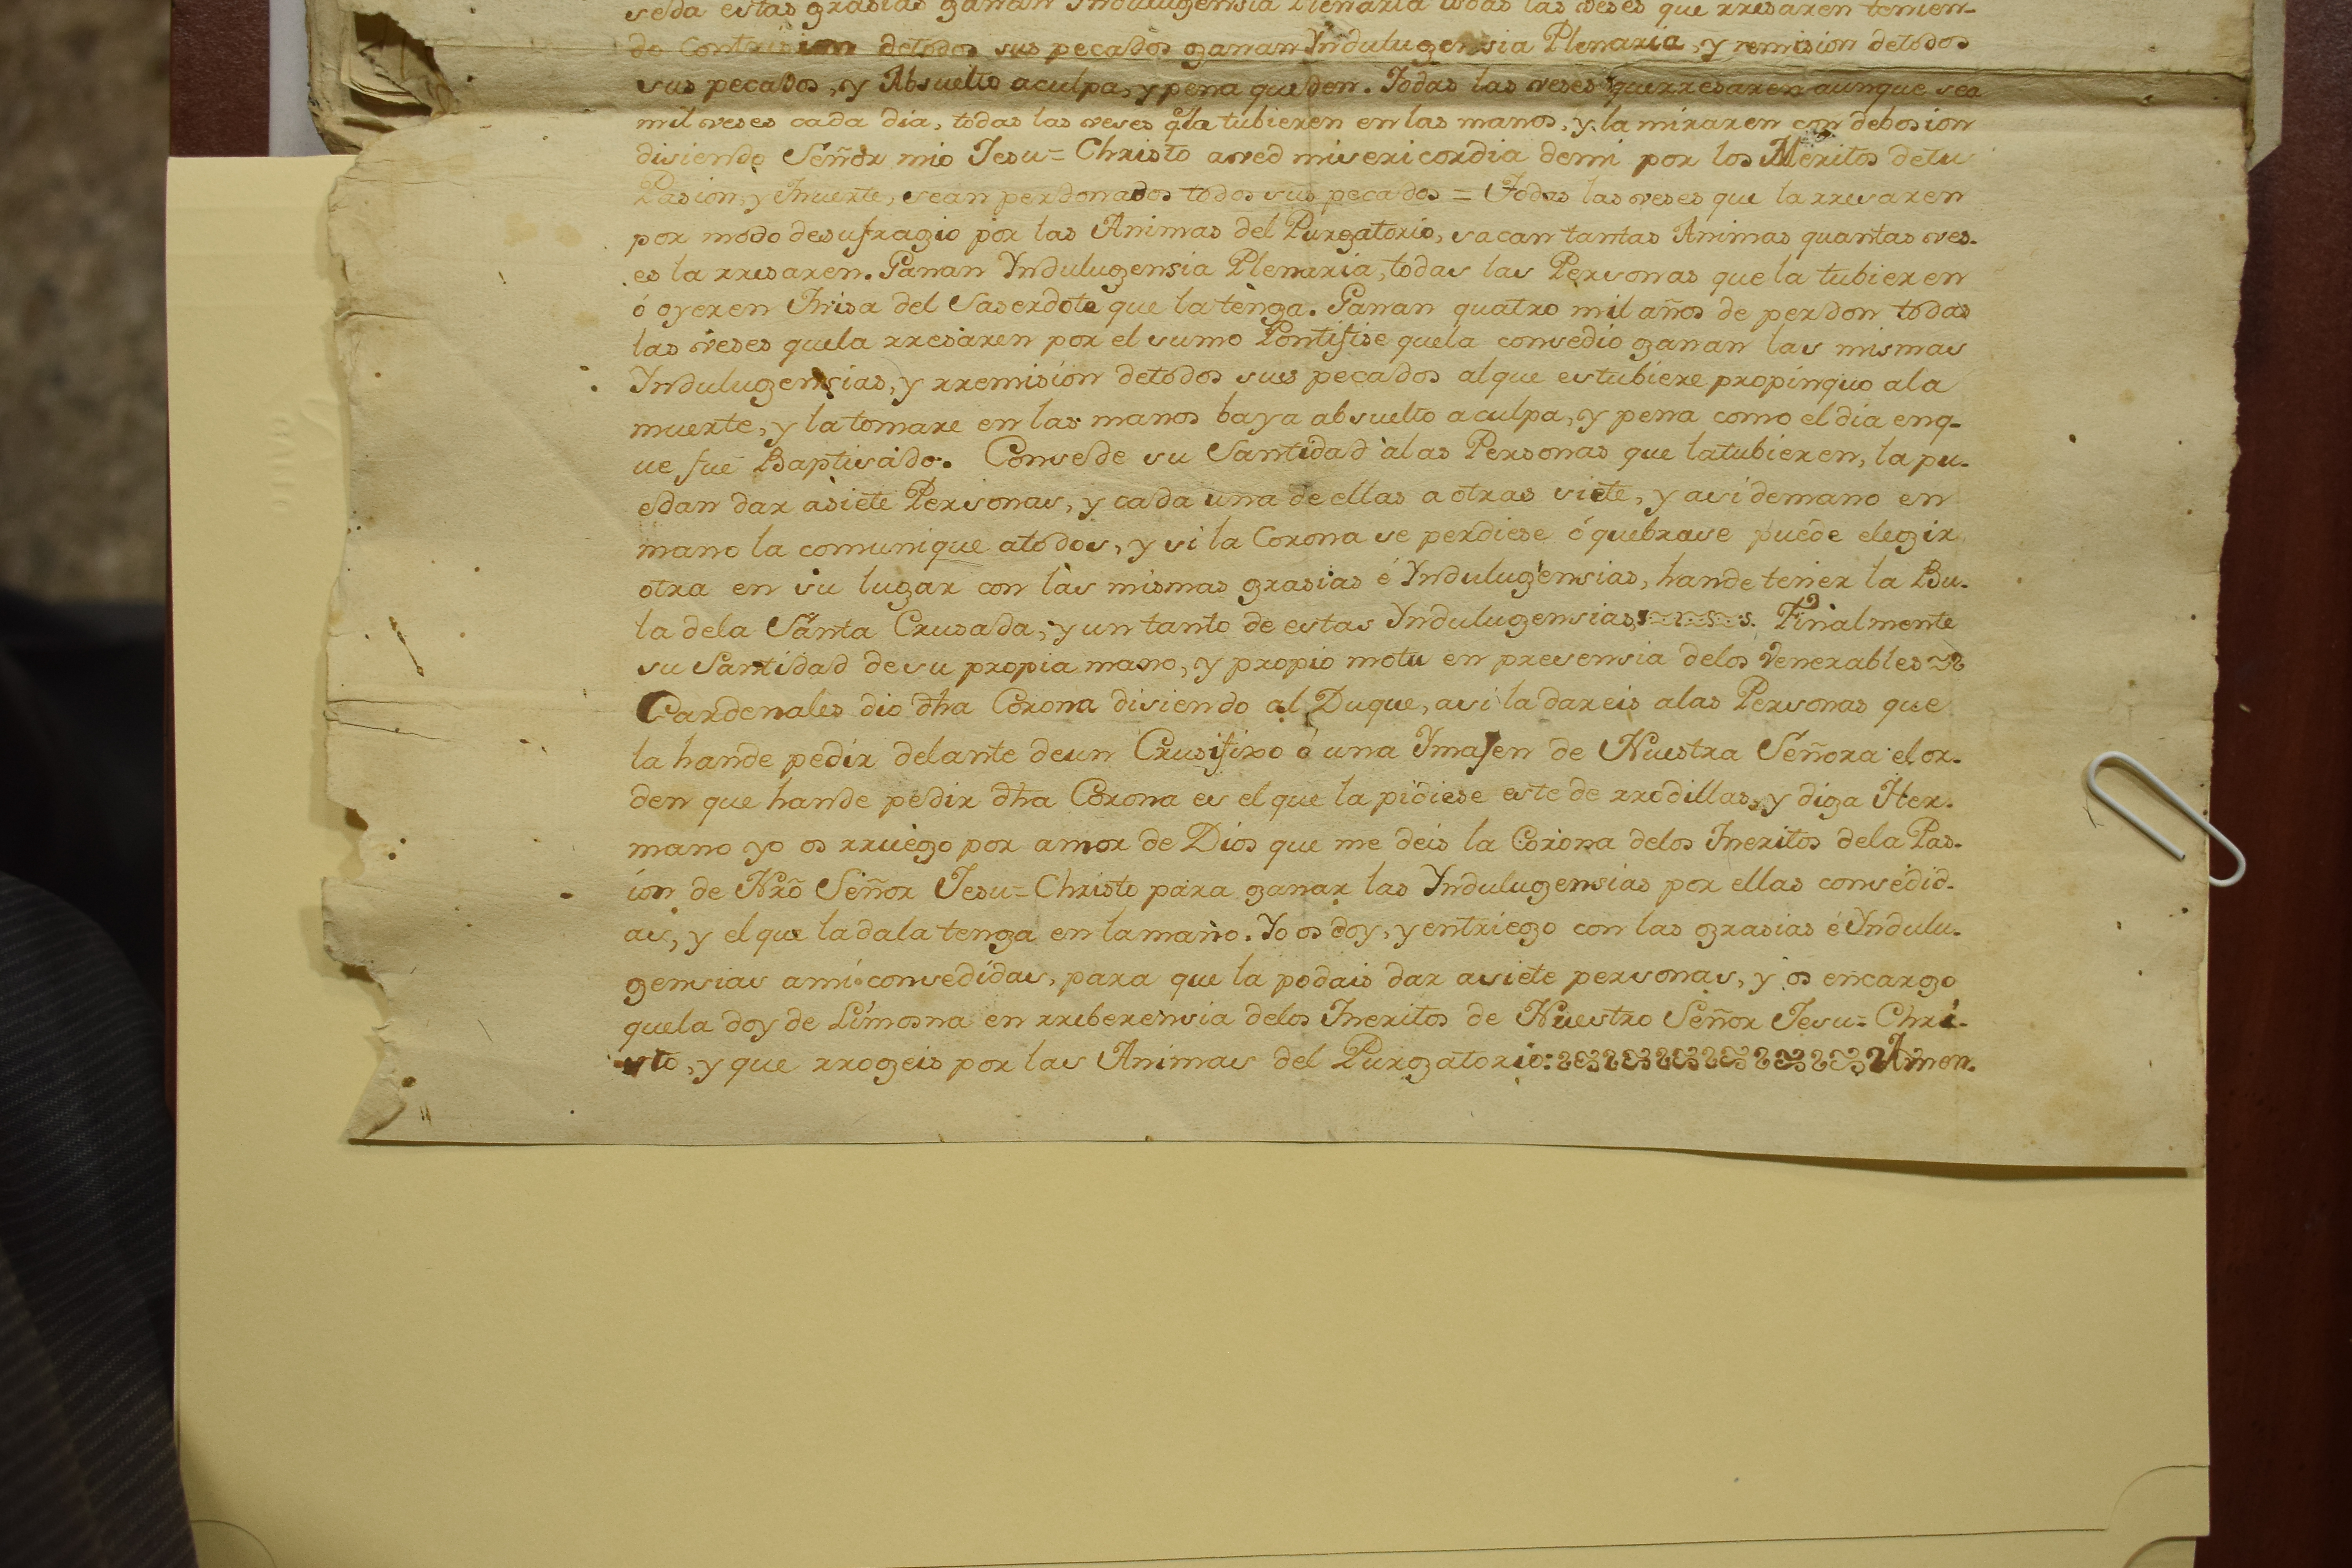 seda estas grasias ganan Yndulugensia Plenaria todas las veses que rresaren tenien-
do Contrision detodos sus pecados ganan Yndulugensia Plenaria, y remision detodos
sus pecados, y Absuelto aculpa, y pena queden. Todas las veses que rresaren aunque sea
mil veses cada dia, todas las veses q̃ la tubieren en las manos, y la miraren con debosion
disiendo Señor mio Jesu=Christo aved misericordia demi por los Meritos detu
Pasion, y Muerte, sean perdonados todos sus pecados = Todas las veses que la rresaren
por modo desufragio por las Animas del Purgatorio, sacan tantas Animas quantas ves-
es la rresaren. Ganan Yndulugensia Plenaria, todas las Personas que la tubieren
ó oyeren Misa del Saserdote que la tenga. Ganan quatro mil años de perdon todas
las veses quela rresaren por el sumo Pontifise quela consedio ganan las mismas
Yndulugensias, y rremision detodos sus pecados alque estubiere propinquo ala
muerte, y la tomare en las manos baya absuelto aculpa, y pena como el dia enq-
ue fue Baptisado. Consede su Santidad àlas Personas que latubieren, la pu-
edan dar asiete Personas, y cada una de ellas a otras siete, y asi demano en
mano la comunique atodos, y si la Corona se perdiese ó quebrase puede elegir
otra en su lugar con las mismas grasias é Yndulugensias, hande tener la Bu-
la dela Santa Crusada, y un tanto de estas Yndulugensias. Finalmente
su Santidad desu propia mano, y propio motu en presensia delos Venerables
Cardenales dio dh̃a Corona disiendo al Duque, asi la dareis alas Personas que
la hande pedir delante deun Crusifixo ó una Ymajen de Nuestra Señora el or-
den que hande pedir dh̃a Corona es el que la pidiese este de rrodillas, y diga Her-
mano yo os rruego por amor de Dios que me deis la Corona delos Meritos dela Pas-
ion de Nrõ Señor Jesu=Christo para ganar las Yndulugensias por ellas consedid-
as, y el que la dala tenga en la mano. Yo os doy, y entriego con las grasias é Yndulu-
gensias ami consedidas, para que la podais dar asiete personas, y os encargo
quela doy de Limosna en rreberensia delos Meritos de Nuestro Señor Jesu=Chri-
sto, y que rrogeis por las Animas del Purgatorio: Amen.